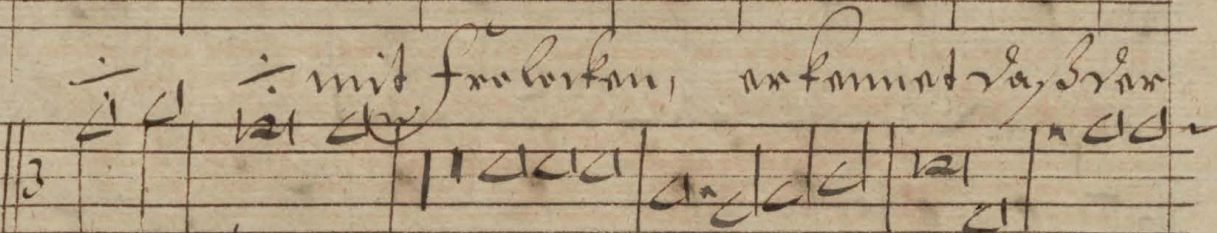 ÷ ÷ mit frolocken, erkennet daß der
3